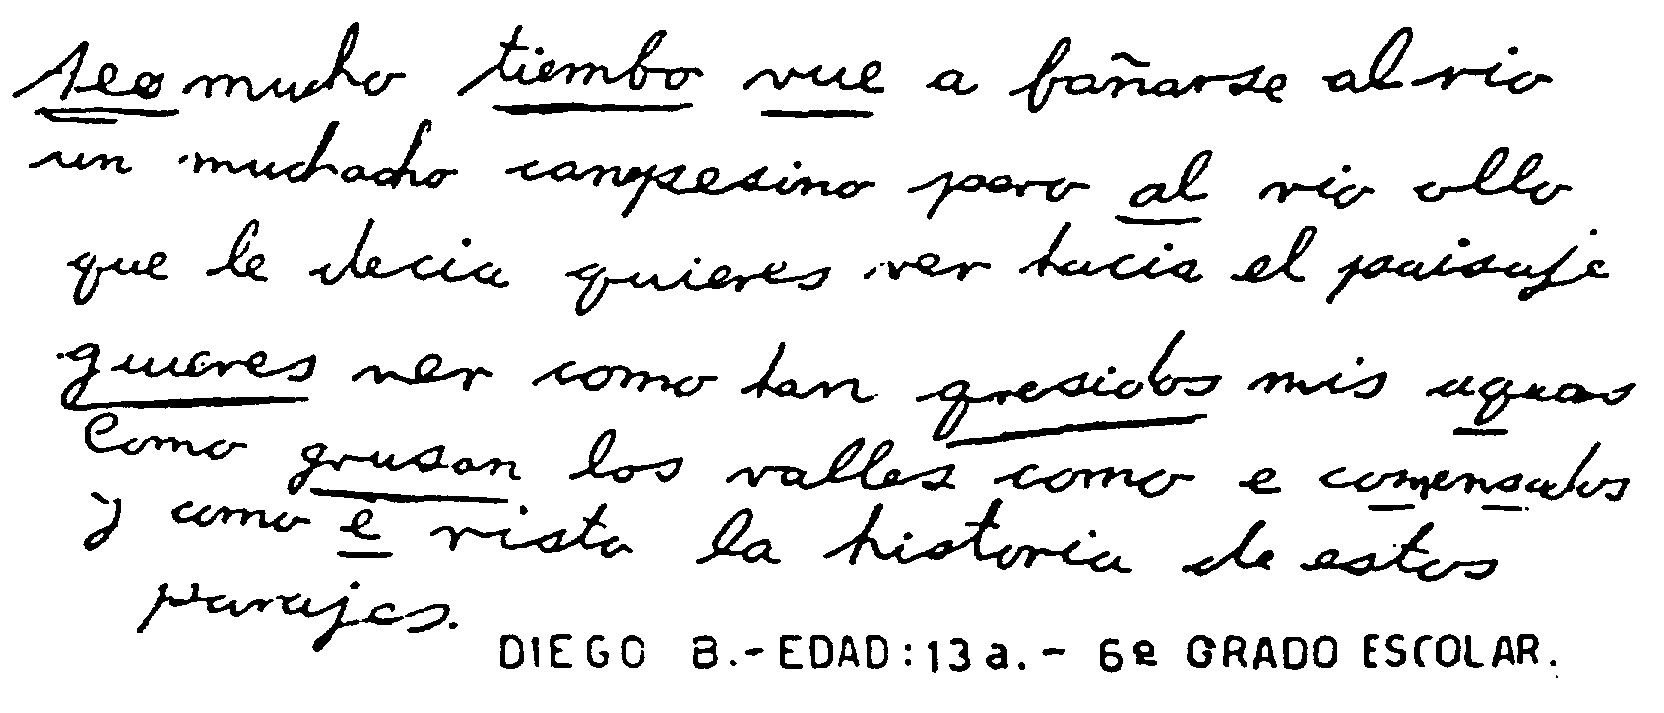 seo mucho tiembo vue a bañarse al rio
un muchacho campesino pero al rio ollo
que le decia quieres ver hacia el paisaje
guieres ver como han qresidos mis aguas
Como grusan los valles como e comensados
y como e visto la historia de estos
parajes.
DIEGO B.-EDAD:13a.- 6º GRADO ESCOLAR.